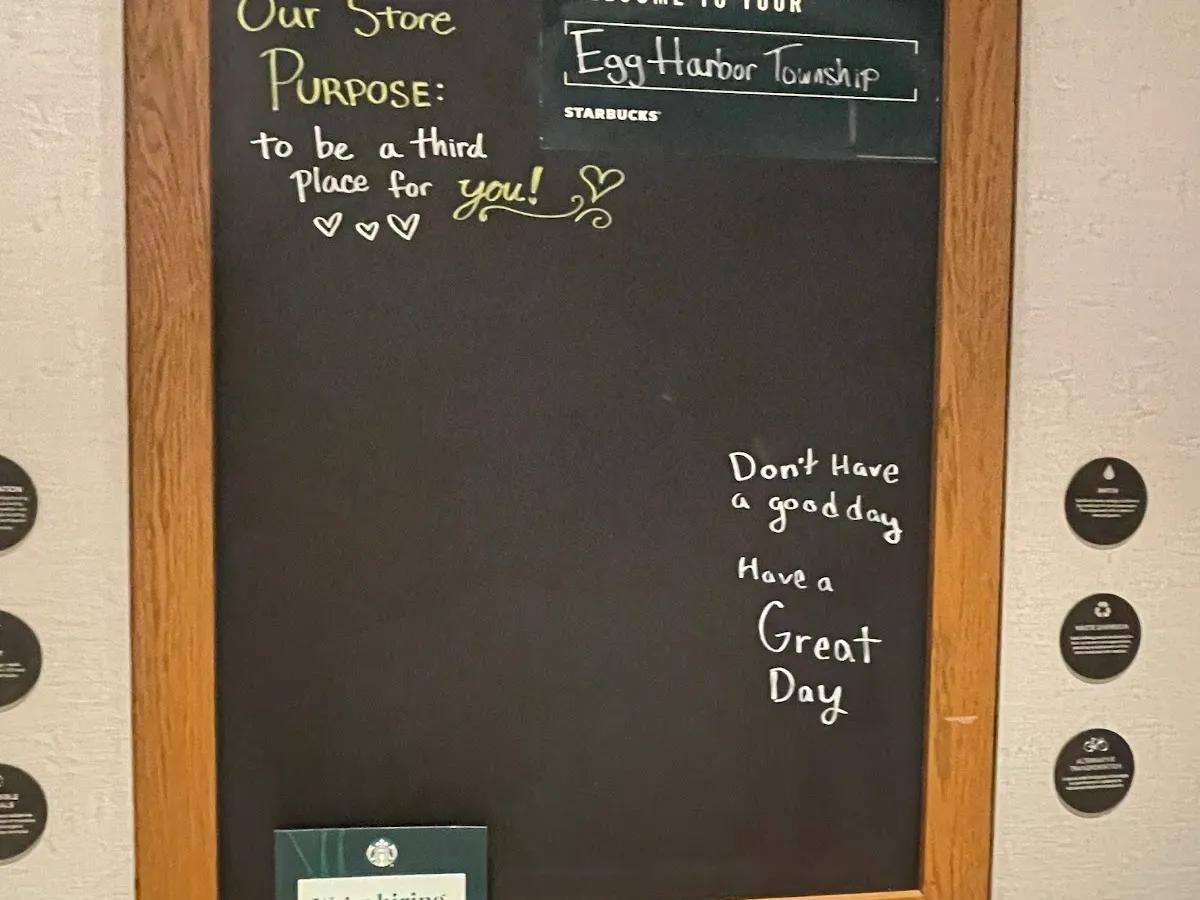 Our Store
PURPOSE:
to be a third
Place for you!
WELCOME TO YOUR
Egg Harbor Township
STARBUCKS
Don't Have
a good day
Have a
Great
Day
We're hiring
WATER
ALTERNATIVE
TRANSPORTATION